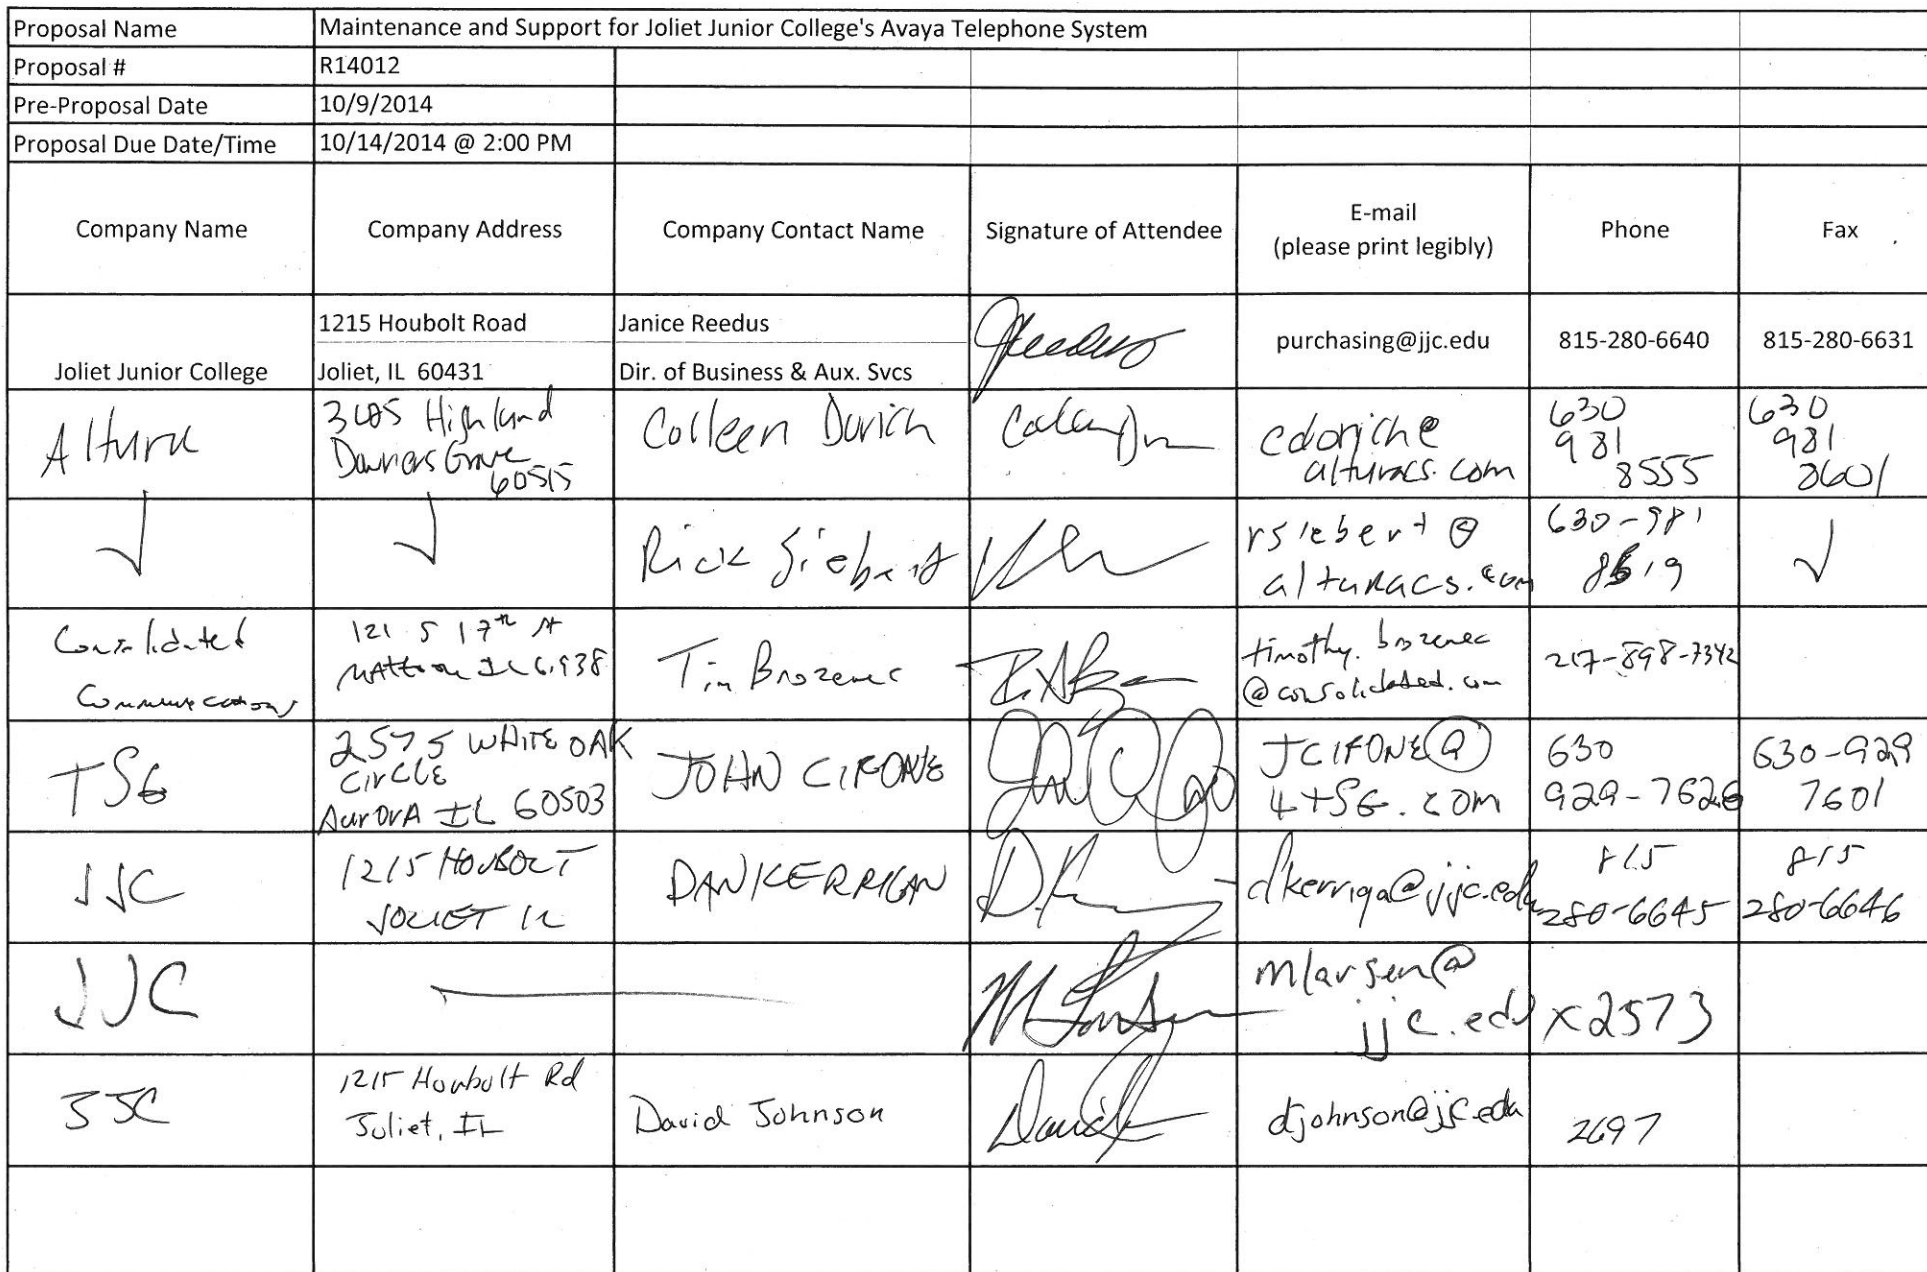 Proposal Name Maintenance and Support for Joliet Junior College's Avaya Telephone System
Proposal # R14012
Pre-Proposal Date 10/9/2014
Proposal Due Date/Time 10/14/2014 @ 2:00 PM
Company Name Company Address Company Contact Name Signature of Attendee E-mail (please print legibly) Phone Fax
Joliet Junior College
1215 Houbolt Road
Joliet, IL 60431
Janice Reedus
Dir. of Business & Aux. Svcs
JReedus
purchasing@jjc.edu
815-280-6640
815-280-6631
Altura
Highland
Downers Grove
60515
Colleen
alturacs.com
630
981
8555
630
981
8601
√
√
Rick Siebert
rsiebert@
alturacs.com
630-981
√
Consolidated
Communications
121 S 17th St
Mattoon IL
Tim Brozenec
timothy.brozenec
@consolidated.com
217-898-7342
TSG
2575 WHITE OAK
CIRCLE
AurorA IL 60503
JOHN CIFONE
JCIFONE@
4TSG.COM
630
929-7626
630-929
7601
JJC
1215 HOUBOLT
JOLIET IL
DAN KERRIGAN
D.K
dkerriga@jjc.edu
815
280-6645
815
280-6646
JJC
M Larsen
mlarsen@
jjc.edu
x2573
JJC
1215 Houbolt Rd
Joliet, IL
David Johnson
David
djohnson@jjc.edu
2697